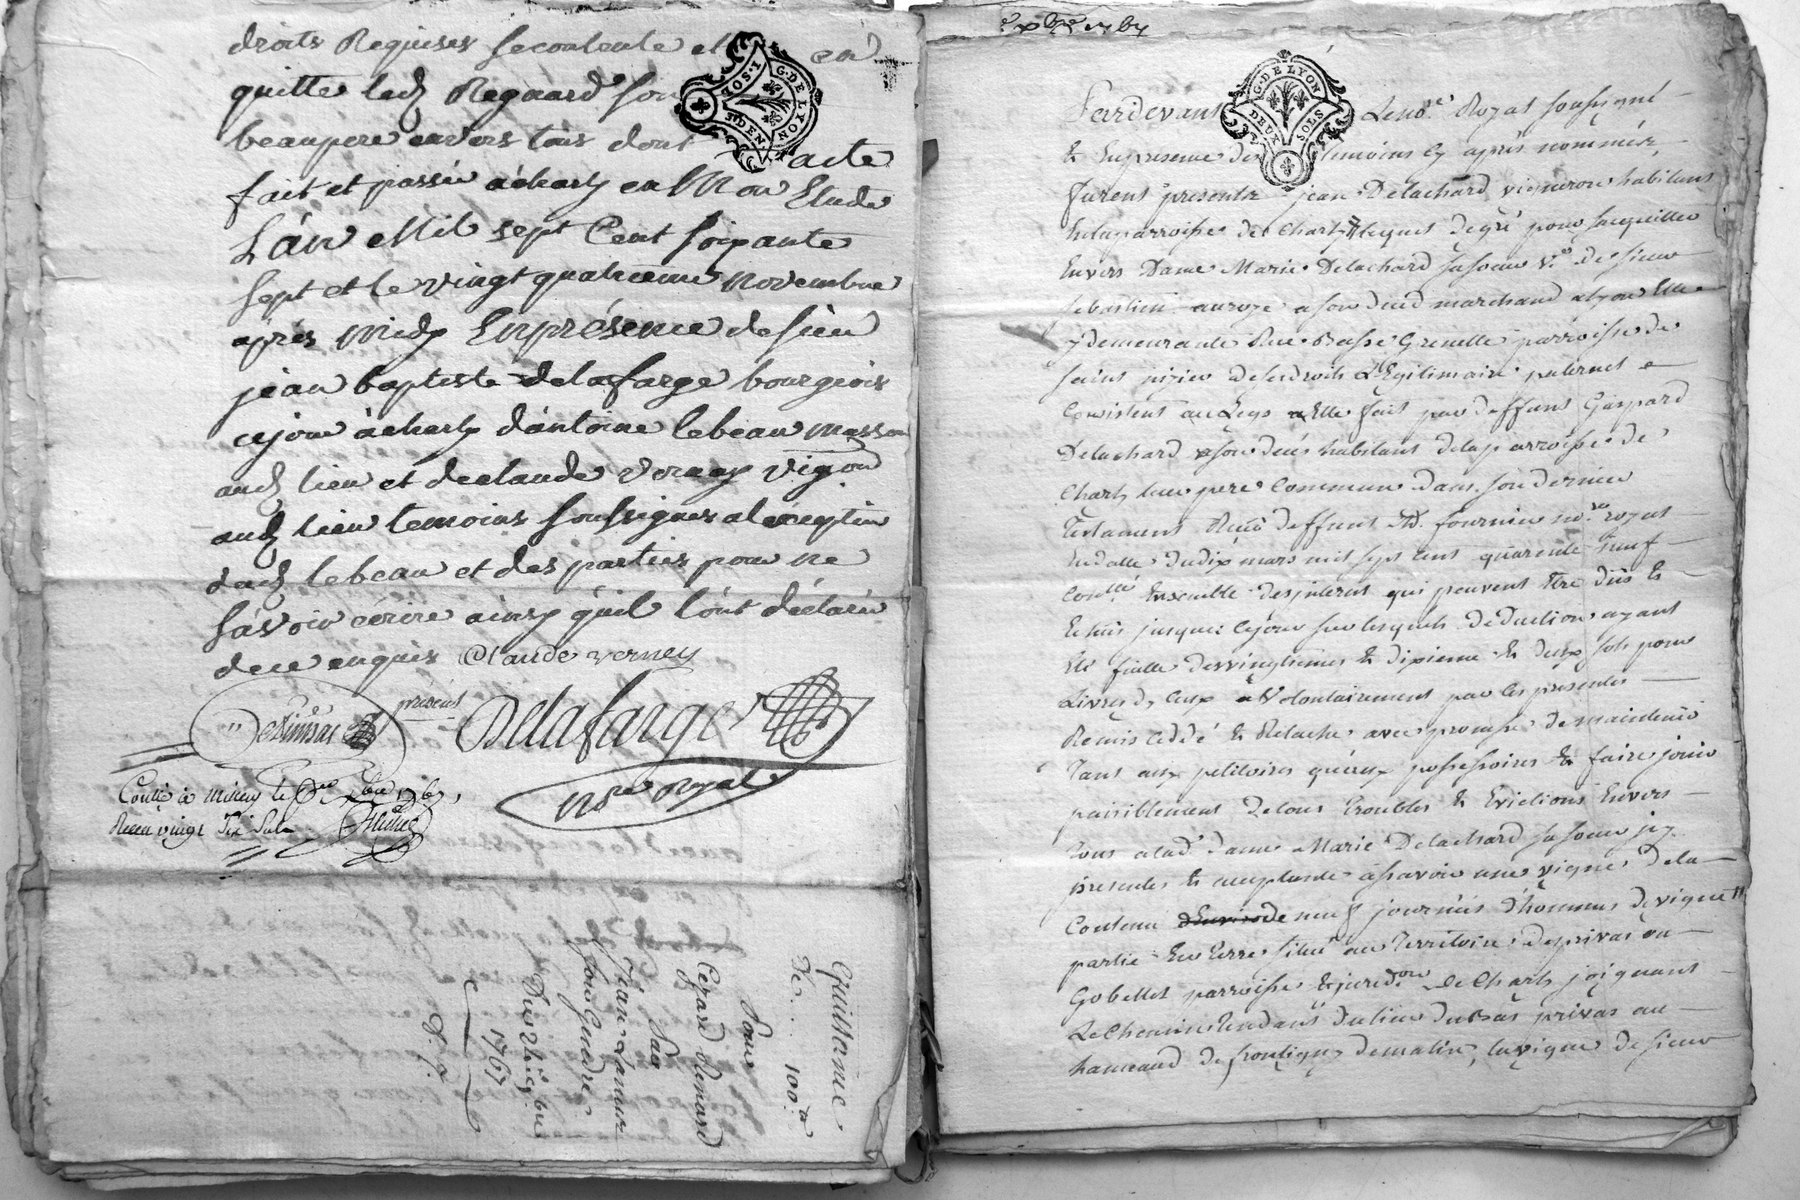 droits Requises se contente et en
quitte led Regnard son
beaupere envers tous dont acte
fait et passé a charly en Mon Etude
L'an Mil sept Cent soixante
sept et le vingt quatrieme novembre
après midy En présence de sieur
jean baptiste delafarge bourgeois
cejour à charly d'antoine lebeau masson
aud lieu et de claude verney vigon
aud lieu temoins soussignes a lexception
dud lebeau et des parties pour ne
sávoir ecrire ainsy qúil l'ont déclaré
de ce enquis Claude verney
présent
Delafarge
nre royal
Conllé à millery le
Reçu vingt six sols
Quittance
De.... 100 #
Pour
Cézard Renard
Par
Jean
Son Gendre
Du 24 9bre
1767
G. DE LYON
1. SOL
G. DE LYON
DEUX SOLS
Pardevant Le nore Royal soussigné
& En presence des temoins cy après nommés,
furent presente jean Delachard vigneron habitant
en la parroisse de Charly lequel de gré pour sacquitter
Envers Dame Marie Delachard sa soeur ve de sieur
sebastien auroze a son deced marchand a lyon Elle
y demeurante Rue Basse Grenette parroisse de
saint nizier de ses droits Legitimaire paternel
Consistent au Legs a Elle fait par deffunt Gaspard
Delachard a son deces habitant de la parroisse de
Charly leur pere Commun dans son dernier
Testament Recu deffunt Me fournier nore royal
En datte du dix mars mil sept cent quarente neuf
Conllé Ensemble des interest qui peuvent Etre dus &
Echus jusques a ce jour sur lesquels deduction ayant
Eté faitte des vingtiemes & dixieme & deux sols pour
Livres d, Ceux a volontairement par les presentes
Remis cedé & Relaché avec promesse de maintenir
Tant aux petitoires qu'aux possessoires & faire jouir
paisiblement de tous troubles & Evictions Envers
Tous a lad dame Marie Delachard sa soeur icy
presente & acceptante a sçavoir une vigne de la
Contenue de neuf journées d'hommes de vigne
partie En terre situé au Territoire des privas ou
Gobellet parroisse & juridon de Charly joignant
Le Chemin tendant du lieu du bas privas au
hameaud de frontigny de matin, la vigne de sieur